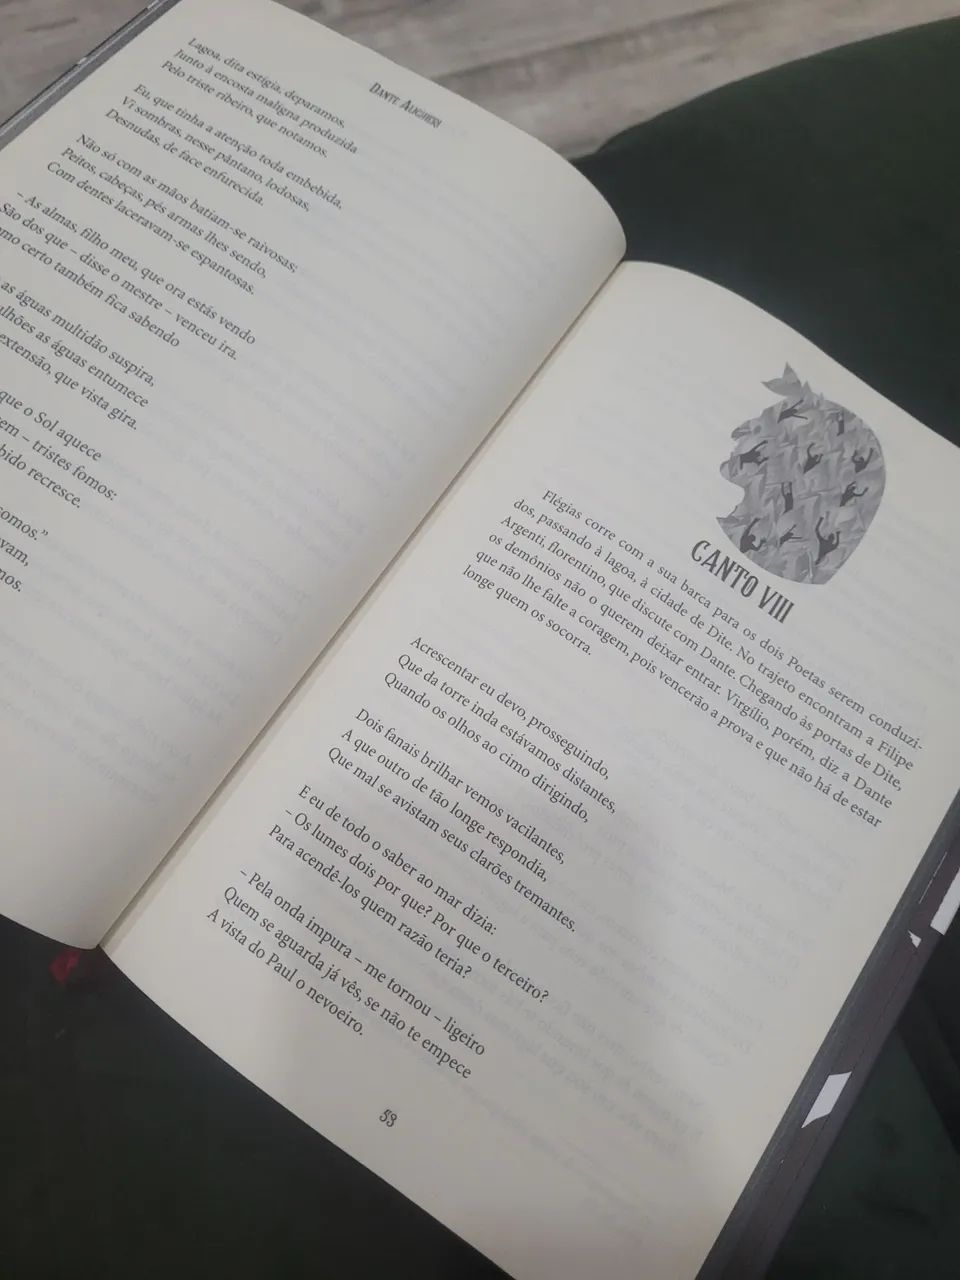 Dante Alighieri
Lagoa, dita estígia, deparamos,
Junto à encosta maligna produzida
Pelo triste ribeiro, que notamos.
Eu, que tinha a atenção toda embebida,
Vi sombras, nesse pântano, lodosas,
Desnudas, de face enfurecida.
Não só com as mãos batiam-se raivosas;
Peitos, cabeças, pés armas lhes sendo,
Com dentes laceravam-se espantosas.
– As almas, filho meu, que ora estás vendo
São dos que – disse o mestre – venceu ira.
certo também fica sabendo
as águas multidão suspira,
as águas entumece
extensão, que vista gira.
que o Sol aquece
– tristes fomos:
recresce.
somos.”
CANTO VIII
Flégias corre com a sua barca para os dois Poetas serem conduzi-
dos, passando à lagoa, à cidade de Dite. No trajeto encontram a Filipe
Argenti, florentino, que discute com Dante. Chegando às portas de Dite,
os demônios não o querem deixar entrar. Virgílio, porém, diz a Dante
que não lhe falte a coragem, pois vencerão a prova e que não há de estar
longe quem os socorra.
Acrescentar eu devo, prosseguindo,
Que da torre inda estávamos distantes,
Quando os olhos ao cimo dirigindo,
Dois fanais brilhar vemos vacilantes,
A que outro de tão longe respondia,
Que mal se avistam seus clarões tremantes.
E eu de todo o saber ao mar dizia:
– Os lumes dois por que? Por que o terceiro?
Para acendê-los quem razão teria?
– Pela onda impura – me tornou – ligeiro
Quem se aguarda já vês, se não te empece
A vista do Paul o nevoeiro.
53